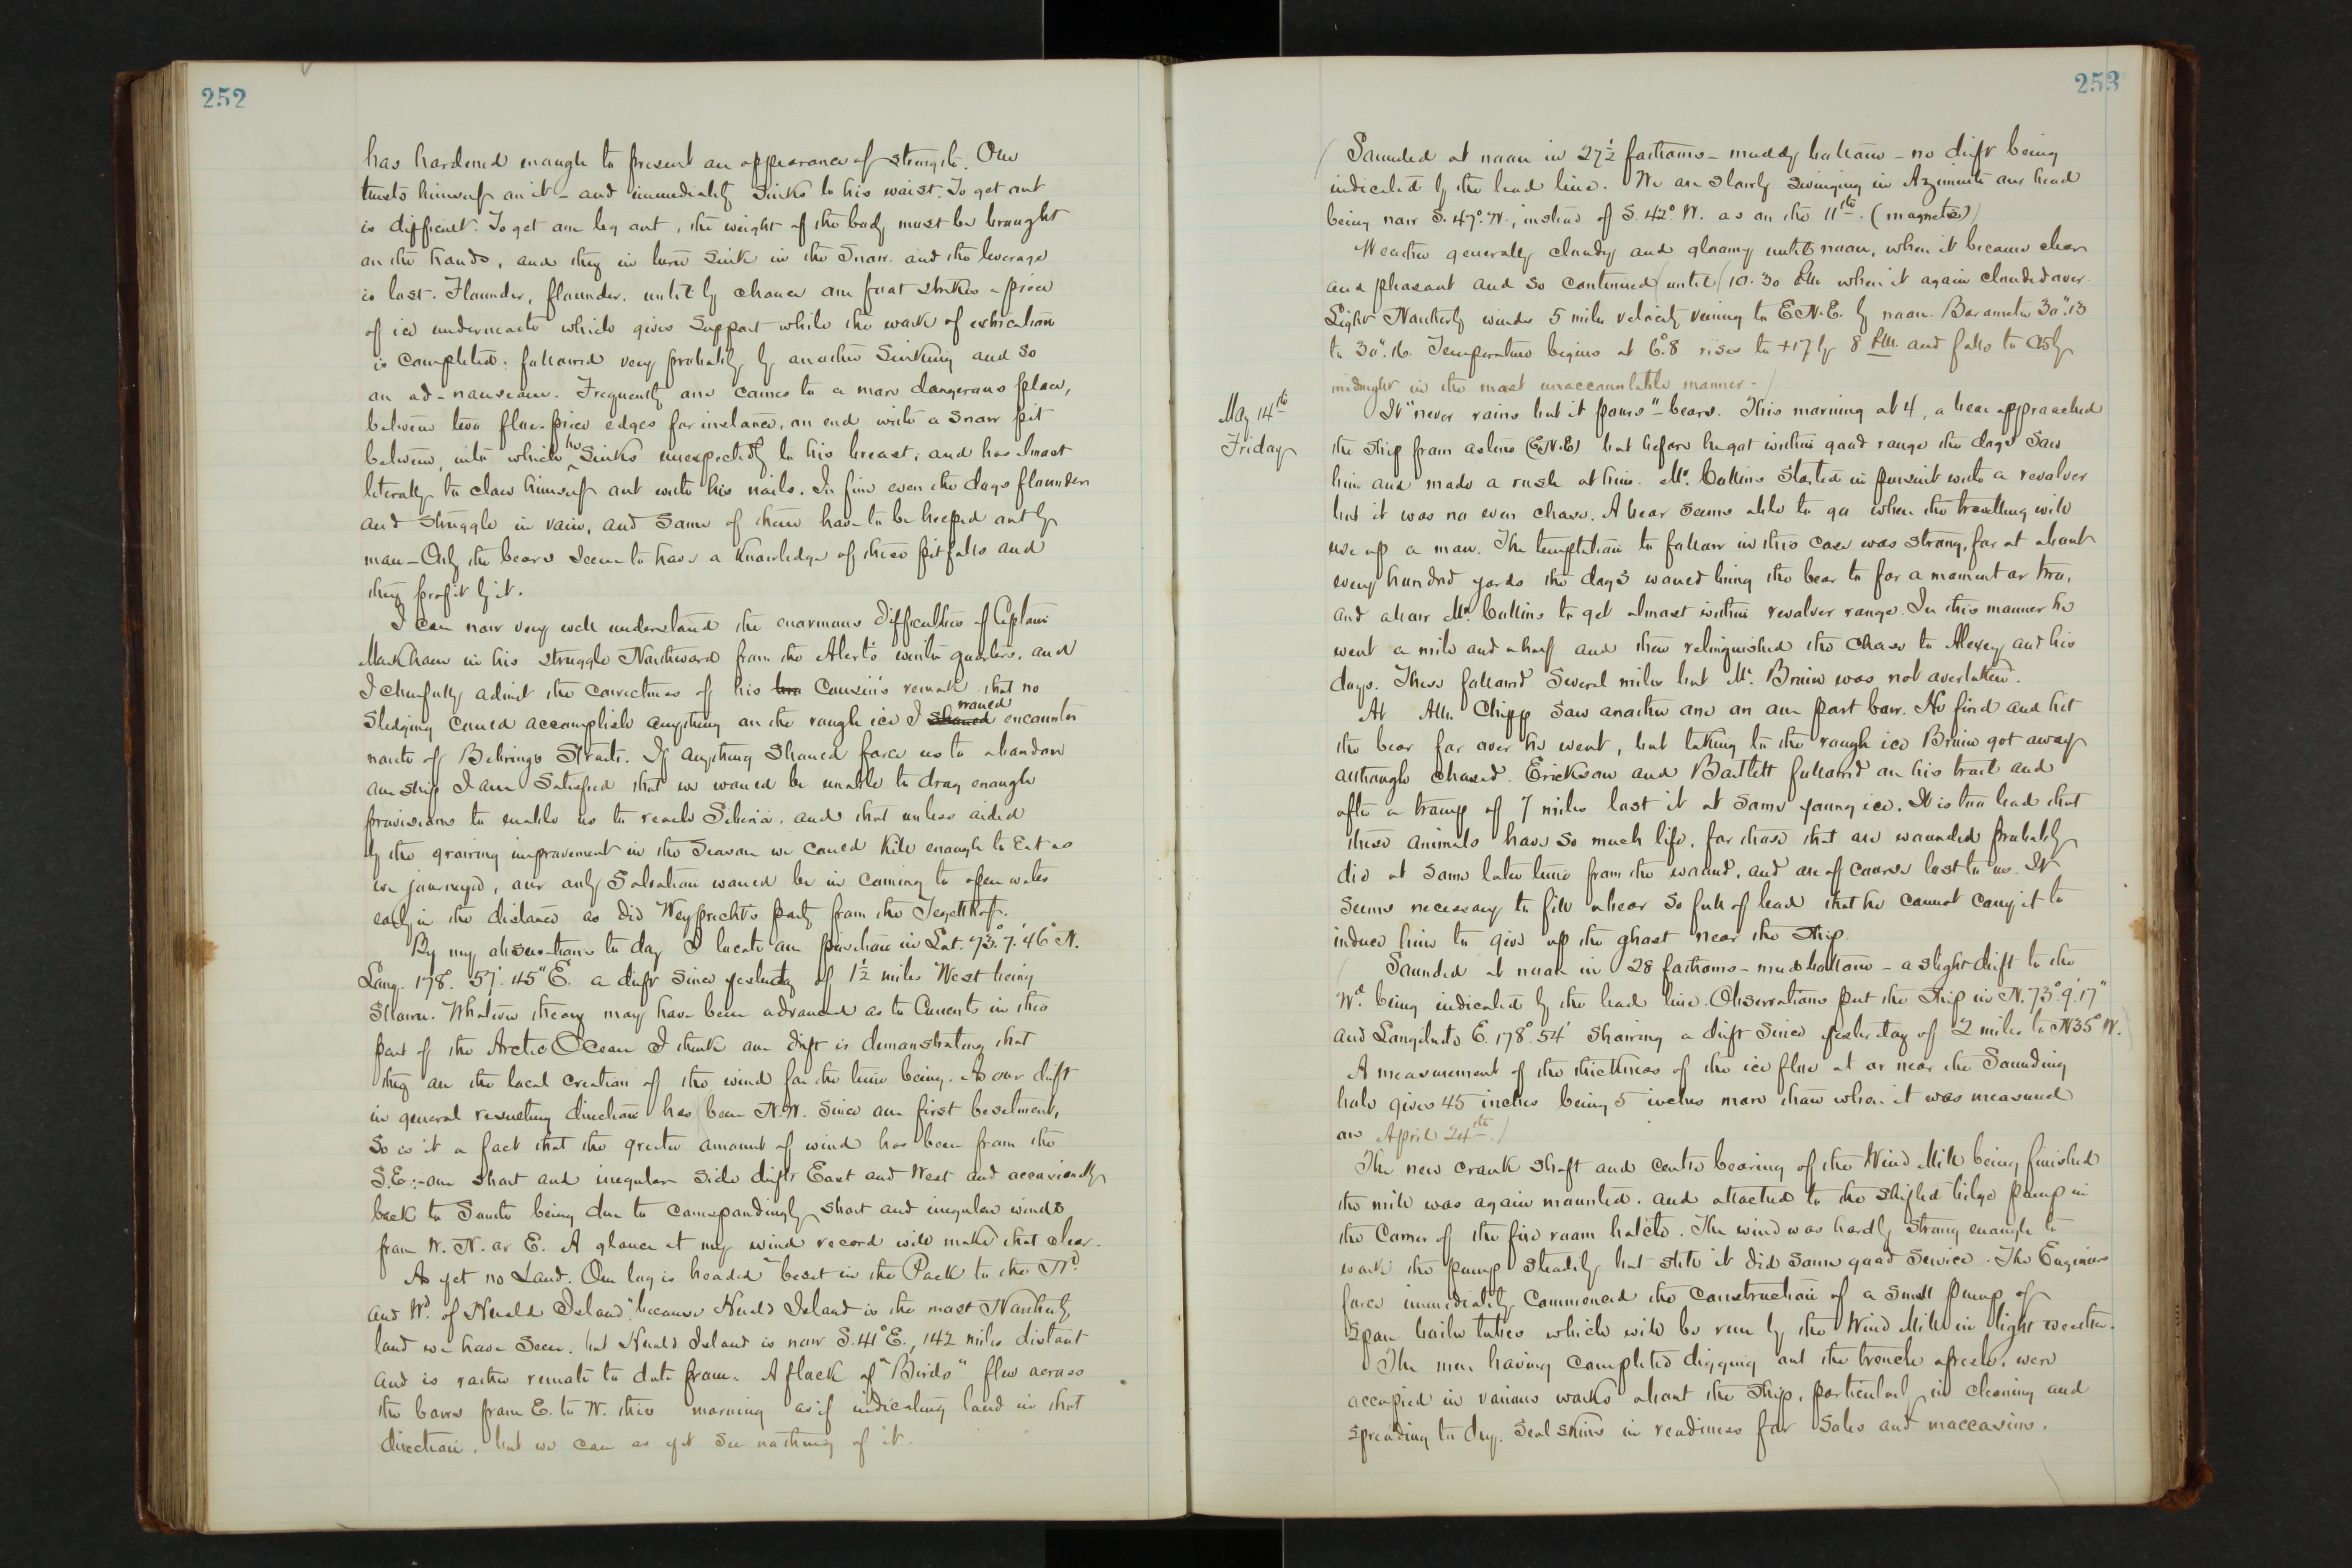 252
has hardened enough to present an appearance of strength. One
trusts himself on it - and immediately sinks to his waist. To get out
is difficult. To get one leg out, the weight of the body must be brought
on the hands, and they in turn sink in the snow. and the leverage
is lost. Flounder, flounder, until by chance one foot strikes a piece
of ice underneath which gives support while the work of extrication
is completed; followed very probably by another sinking and so
on ad-nauseam. Frequently one comes to a more dangerous place,
between two floe-piece edges for instance, on end with a snow pit
between, into which he sinks unexpectedly to his breast, and has almost
literally to claw himself out with his nails. In fine even the dogs flounder
and struggle in vain, and some of them have to be helped out by
man - Only the bears seem to have a knowledge of these pitfalls and
they profit by it.
I can now very well understand the enormous difficulties of Captain
Markham in his struggle Northward from the Alert's winter quarters, and
I cheerfully admit the correctness of his two Cousin's remark that no
sledging could accomplish anything on the rough ice I should would encounter
north of Behrings Straits. If anything should force us to abandon
our ship I am satisfied that we would be unable to drag enough
provisions to enable us to reach Siberia, and that unless aided
by the growing improvement in the season we could kill enough to eat as
we journeyed, our only salvation would be in coming to open water
early in the distance as did Weyprecht's party from the Tegetthof.
By my observations to day I locate our position in Lat. 73° 7' 46" N.
Long. 178° 57' 45" E. a drift since yesterday of 1½ miles West being
shown. Whatever theory may have been advanced as to Currents in this
part of the Arctic Ocean I think our drift is demonstrating that
they are the local creation of the wind for the time being. As our drift
in general resulting direction has been N.W. since our first besetment,
so is it a fact that the greater amount of wind has been from the
S.E:- our short and irregular side drifts East and West and occasionally
back to South being due to correspondingly short and irregular winds
from W. N. or E. A glance at my wind record will make that clear.
As yet no Land. Our log is headed "beset in the Pack to the Nd
and Wd of Herald Island", because Herald Island is the most Northerly
land we have seen, but Herald Island is now S. 41° E., 142 miles distant
and is rather remote to date from. A flock of "Birds" flew across
the bows from E. to W. this morning as if indicating land in that
direction, but we can as yet see nothing of it.
253
Sounded at noon in 27½ fathoms - muddy bottom - no drift being
indicated by the lead line. We are slowly swinging in Azimuth our head
being now S. 47° W., instead of S. 42° W. as on the 11th. (magnetic)
Weather generally cloudy and gloomy until noon, when it became clear
and pleasant and so continued until 10.30 P.M. when it again clouded over.
Light Northerly winds 5 miles velocity veering to E.N.E. by noon. Barometer 30".13
to 30".16. Temperature begins at 6°.8 rises to +17 by 8 P.M. and falls to by
midnight in the most unaccountable manner.
May 14th
Friday
It "never rains but it pours" - bears. This morning at 4, a bear approached
the ship from astern (E.N.E) but before he got within good range the dogs saw
him and made a rush at him. Mr. Collins started in pursuit with a revolver
but it was no even chase. A bear seems able to go when the travelling will
use up a man. The temptation to follow in this case was strong, for at about
every hundred yards the dogs would bring the bear to for a moment or two,
and allow Mr. Collins to get almost within revolver range. In this manner he
went a mile and a half and then relinquished the chase to Alexey and his
dogs. These followed several miles but Mr. Bruin was not overtaken.
At A.M. Chipp saw another one on our port bow. He fired and hit
the bear for over he went, but taking to the rough ice Bruin got away
although chased. Erickson and Bartlett followed on his trail and
after a tramp of 7 miles lost it at some young ice. It is too bad that
these animals have so much life, for those that are wounded probably
die at some later time from the wound, and are of course lost to us. It
seems necessary to fill a bear so full of lead that he cannot carry it to
induce him to give up the ghost near the ship.
Sounded at noon in 28 fathoms - mud bottom - a slight drift to the
Wd. being indicated by the lead line. Observations put the ship in N. 73° 9' 17"
and Longitude E. 178° 54' showing a drift since yesterday of 2 miles to N35° W.
A measurement of the thickness of the ice floe at or near the Sounding
hole gives 45 inches being 5 inches more than when it was measured
on April 24th.
The new crank shaft and centre bearing of the Wind Mill being finished
the mill was again mounted, and attached to the shifted bilge pump in
the corner of the fire room hatch. The wind was hardly strong enough to
work the pump steadily but still it did some good service. The Engineer
force immediately commenced the construction of a small pump of
spare boiler tubes which will be run by the Wind Mill in light weather.
The men having completed digging out the trench afresh, were
occupied in various works about the ship, particularly in cleaning and
spreading to dry, seal skins in readiness for soles and moccasins.